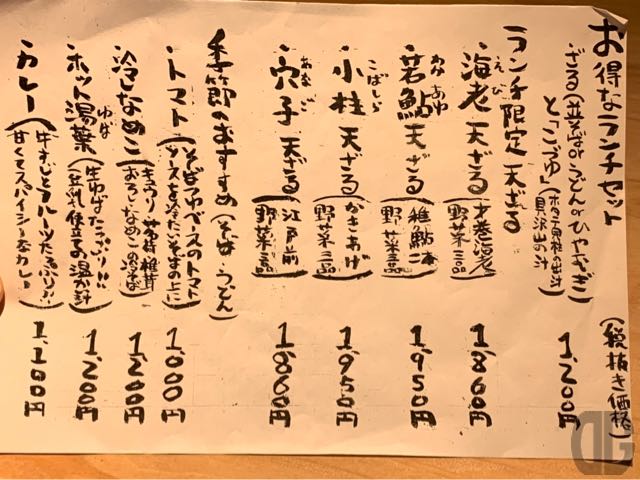 お得なランチセット (税抜き価格)
・ざる(並そばorうどんorひやむぎ)
と「こづゆ」(ホタテ貝柱の出汁 具沢山の汁) 1,200円
ランチ限定天ざる
・海老天ざる(才巻海老 野菜三品) 1,860円
えび
・若鮎天ざる(稚鮎二本 野菜三品) 1,950円
わかあゆ
・小柱天ざる(かきあげ 野菜三品) 1,950円
こばしら
・穴子天ざる(江戸前 野菜三品) 1,860円
あなご
季節のおすすめ(そば・うどん)
・トマト(そばつゆベースのトマト ソースを冷たいそばの上に) 1,000円
・冷しなめこ(きゅうり・椎茸 おろし・なめこの冷そば) 1,200円
・ホット湯葉(生ゆばたっぷり!!! 豆乳仕立ての温か汁) 1,200円
ゆば
・カレー(牛すじとフルーツたっぷり!! 甘くてスパイシーなカレー) 1,100円
DG